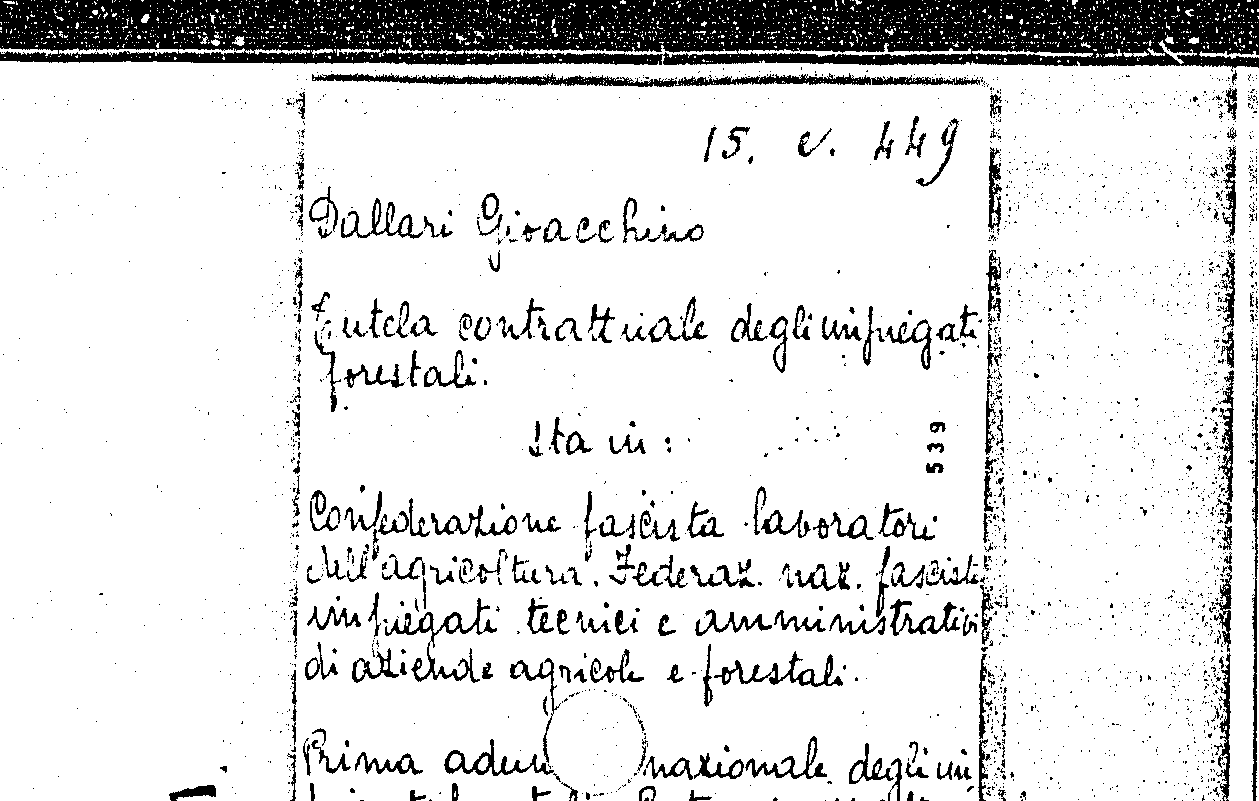 15. V. 449
Dallari Gioacchino
Tutela contrattuale degli impiegati
forestali.
Sta in:
539
Confederazione fascista lavoratori
dell'agricoltura. Federaz. naz. fascista
impiegati tecnici e amministrativi
di aziende agricole e forestali.
Prima adun nazionale degli im